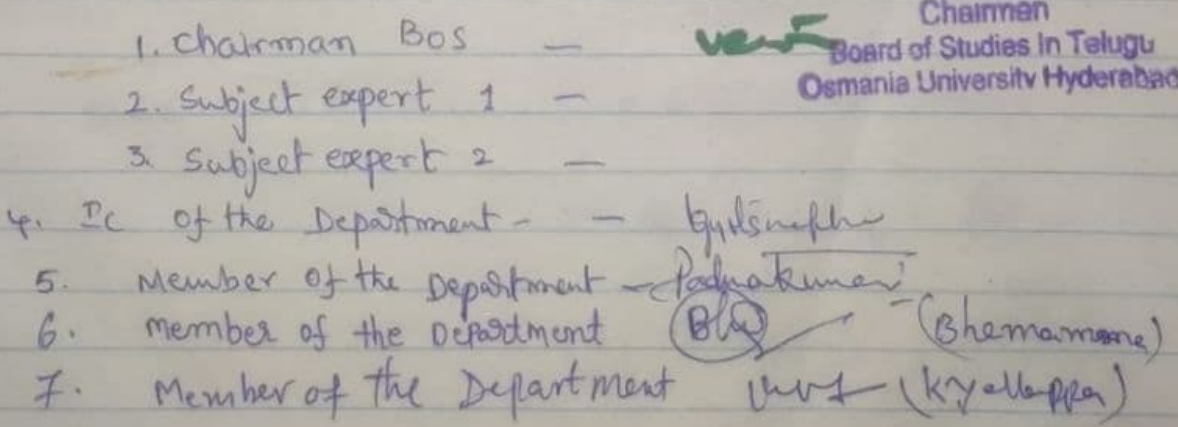 Chairman
1. Chairman BOS -
Board of Studies In Telugu
Osmania University Hyderabad
2. Subject expert 1 -
3. Subject expert 2 -
4. Ic of the Department - -
5. Member of the Department - Padmakumari
6. member of the Department (Bhemamma)
7. Member of the Department (Kyellappa)